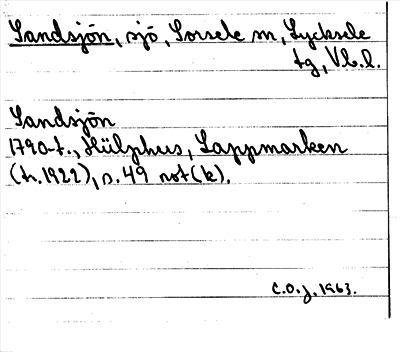 Sandsjön, sjö, Sorsele sn, Lycksele
tg, Vb.l.
Sandsjön
1790-t., Hülphus, Lappmarken
(tr. 1922), s. 49 not (k).
C.O.J. 1963.